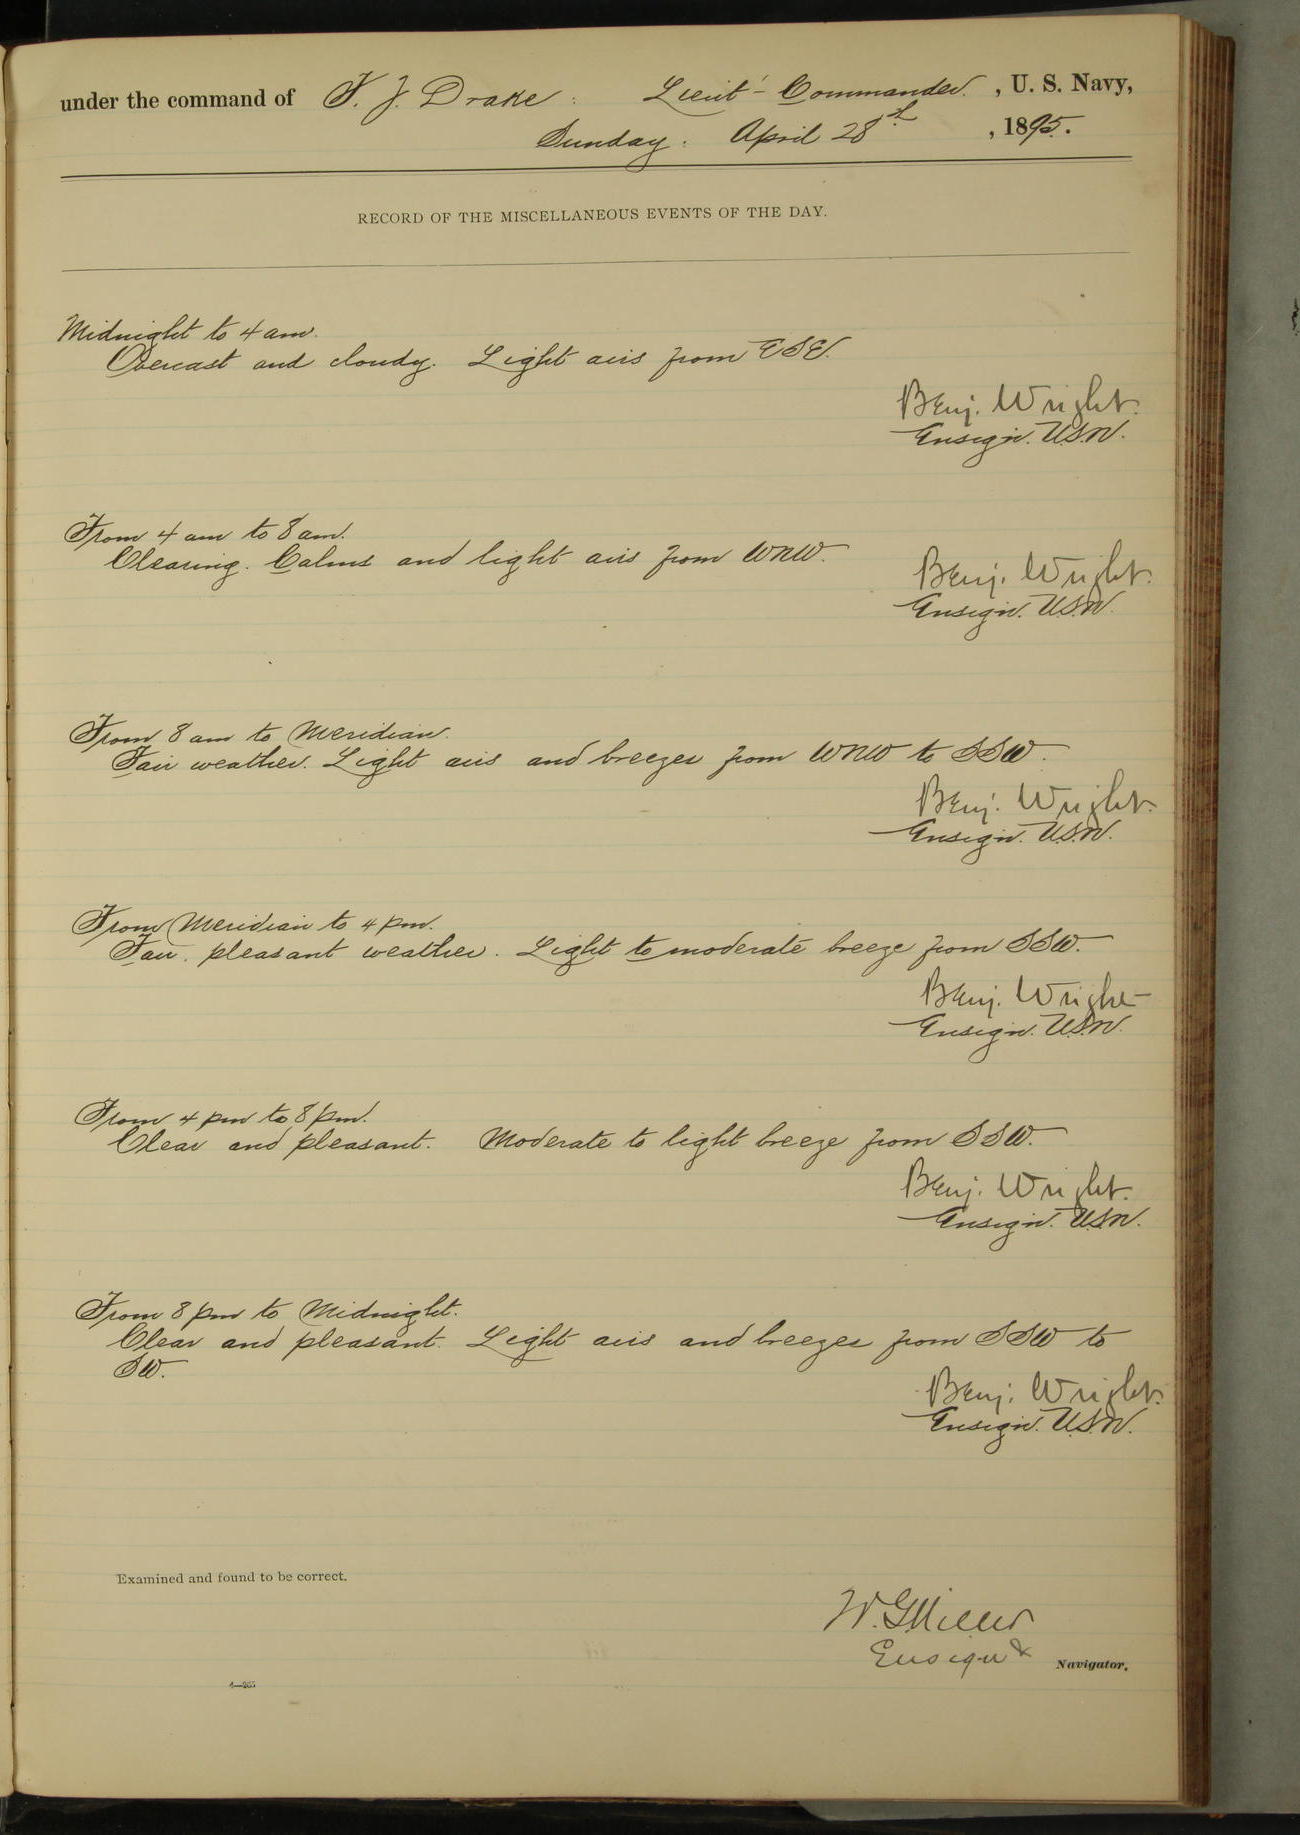 under the command of F. J. Drake. Lieut - Commander. , U. S. Navy,
Sunday. April 28th , 1895.
RECORD OF THE MISCELLANEOUS EVENTS OF THE DAY.
Midnight to 4 am.
Overcast and cloudy. Light airs from ESE.
Benj. Wright.
Ensign. U.S.N.
From 4 am to 8 am.
Clearing. Calms and light airs from WNW.
Benj. Wright.
Ensign. U.S.N.
From 8 am to Meridian.
Fair weather. Light airs and breezes from WNW to SSW.
Benj. Wright.
Ensign. U.S.N.
From Meridian to 4 pm.
Fair, pleasant weather. Light to moderate breeze from SSW.
Benj. Wright
Ensign. U.S.N.
From 4 pm to 8 pm.
Clear and pleasant. Moderate to light breeze from SSW.
Benj. Wright.
Ensign. U.S.N.
From 8 pm to Midnight.
Clear and pleasant. Light airs and breezes from SSW to
SW.
Benj. Wright.
Ensign. U.S.N.
Examined and found to be correct.
W. G. Miller
Ensign & Navigator.